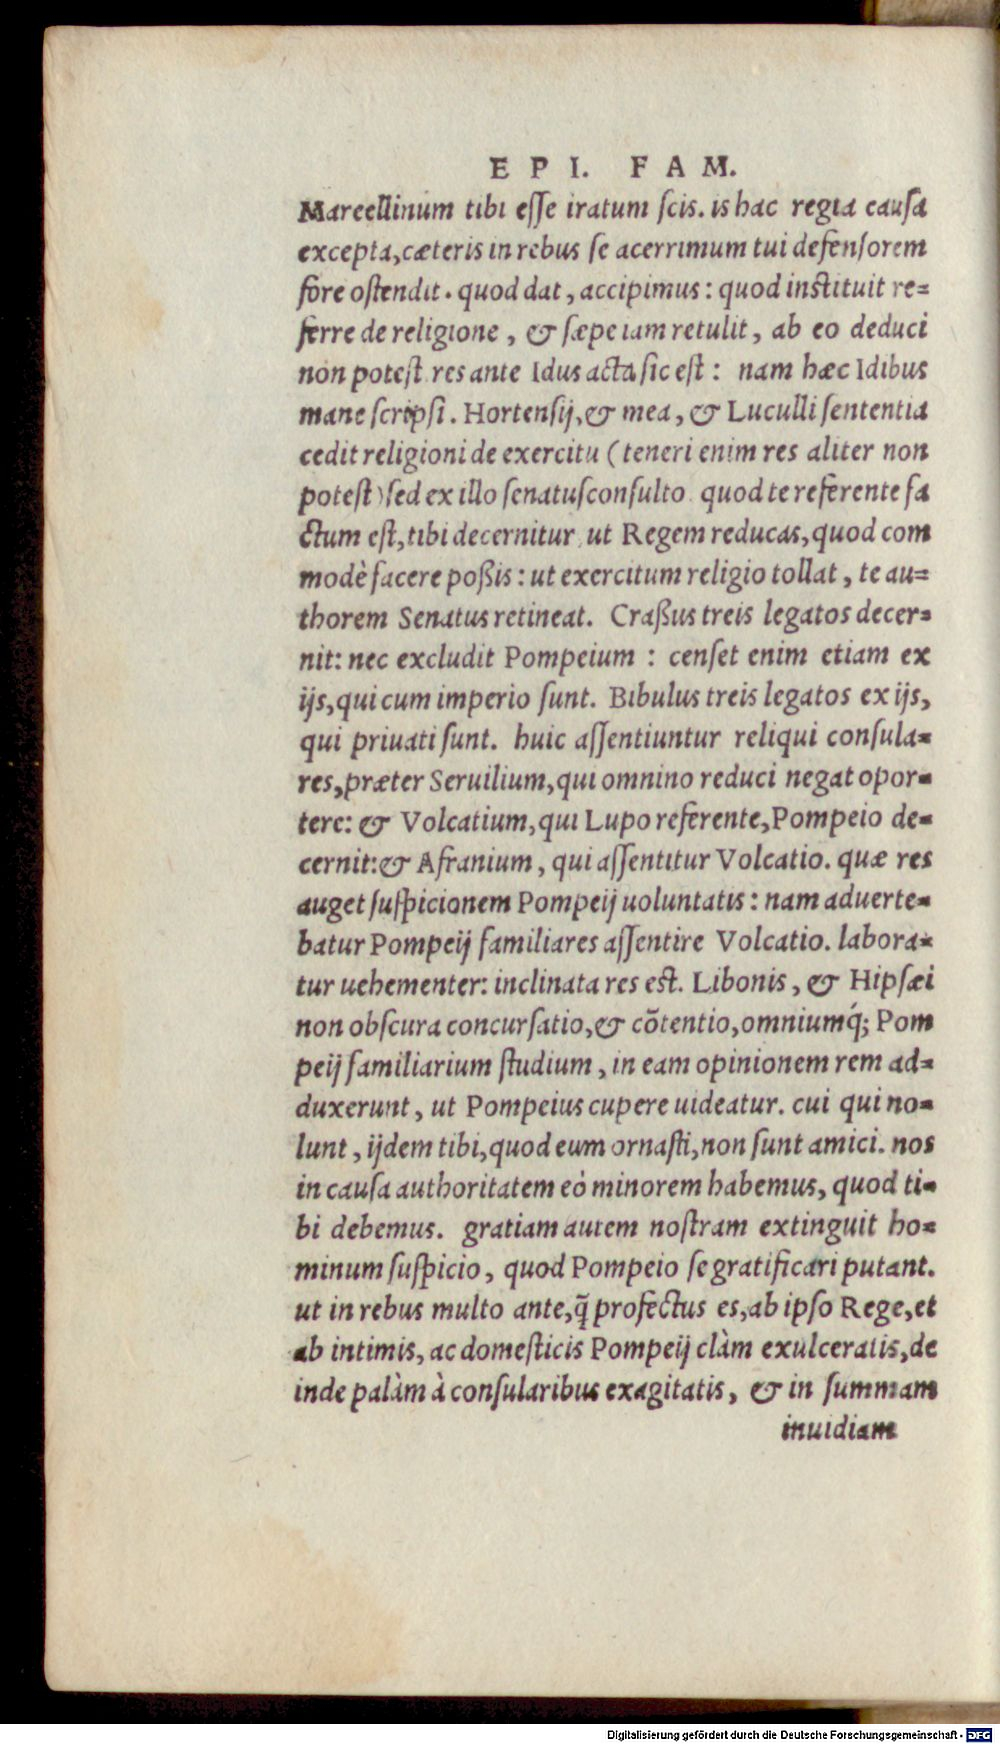 EPI. FAM.
Marcellinum tibi eſſe iratum ſcis. is hac regia cauſa
excepta, cæteris in rebus ſe acerrimum tui defenſorem
fore oſtendit. quod dat, accipimus: quod inſtituit re=
ferre de religione, & ſæpe iam retulit, ab eo deduci
non poteſt. res ante Idus acta ſic eſt: nam hæc Idibus
mane ſcripſi. Hortenſij, & mea, & Luculli ſententia
cedit religioni de exercitu (teneri enim res aliter non
poteſt) ſed ex illo ſenatuſconſulto quod te referente fa
ctum eſt, tibi decernitur, ut Regem reducas, quod com
modè facere poßis: ut exercitum religio tollat, te au=
thorem Senatus retineat. Craßus treis legatos decer=
nit: nec excludit Pompeium: cenſet enim etiam ex
ijs, qui cum imperio ſunt. Bibulus treis legatos ex ijs,
qui priuati ſunt. huic aſſentiuntur reliqui conſula=
res, præter Seruilium, qui omnino reduci negat opor=
tere: & Volcatium, qui Lupo referente, Pompeio de=
cernit: & Afranium, qui aſſentitur Volcatio. quæ res
auget ſuſpicionem Pompeij uoluntatis: nam aduerte=
batur Pompeij familiares aſſentire Volcatio. labora=
tur uehementer: inclinata res eſt. Libonis, & Hipſæi
non obſcura concurſatio, & cõtentio, omniumq́; Pom
peij familiarium ſtudium, in eam opinionem rem ad=
duxerunt, ut Pompeius cupere uideatur. cui qui no=
lunt, ijdem tibi, quod eum ornaſti, non ſunt amici. nos
in cauſa authoritatem eò minorem habemus, quod ti=
bi debemus. gratiam autem noſtram extinguit ho=
minum ſuſpicio, quod Pompeio ſe gratificari putant.
ut in rebus multo ante, q̃ profectus es, ab ipſo Rege, et
ab intimis, ac domeſticis Pompeij clàm exulceratis, de
inde palàm à conſularibus exagitatis, & in ſummam
inuidiam
Digitalisierung gefördert durch die Deutsche Forschungsgemeinschaft - DFG